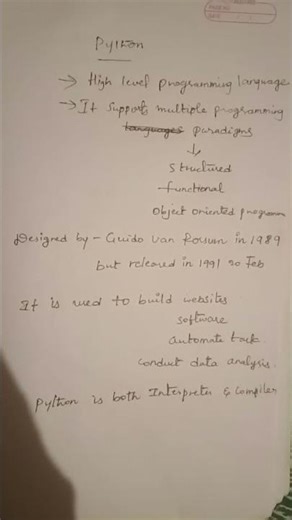 Python
→ High level programming language
→ It supports multiple programming
languages paradigms
↓
Structured
functional
Object oriented program
Designed by - Guido Van Rossum in 1989
but released in 1991 20 Feb
It is used to build websites
software
automate task.
conduct data analysis.
Python is both Interpreter & Compiler